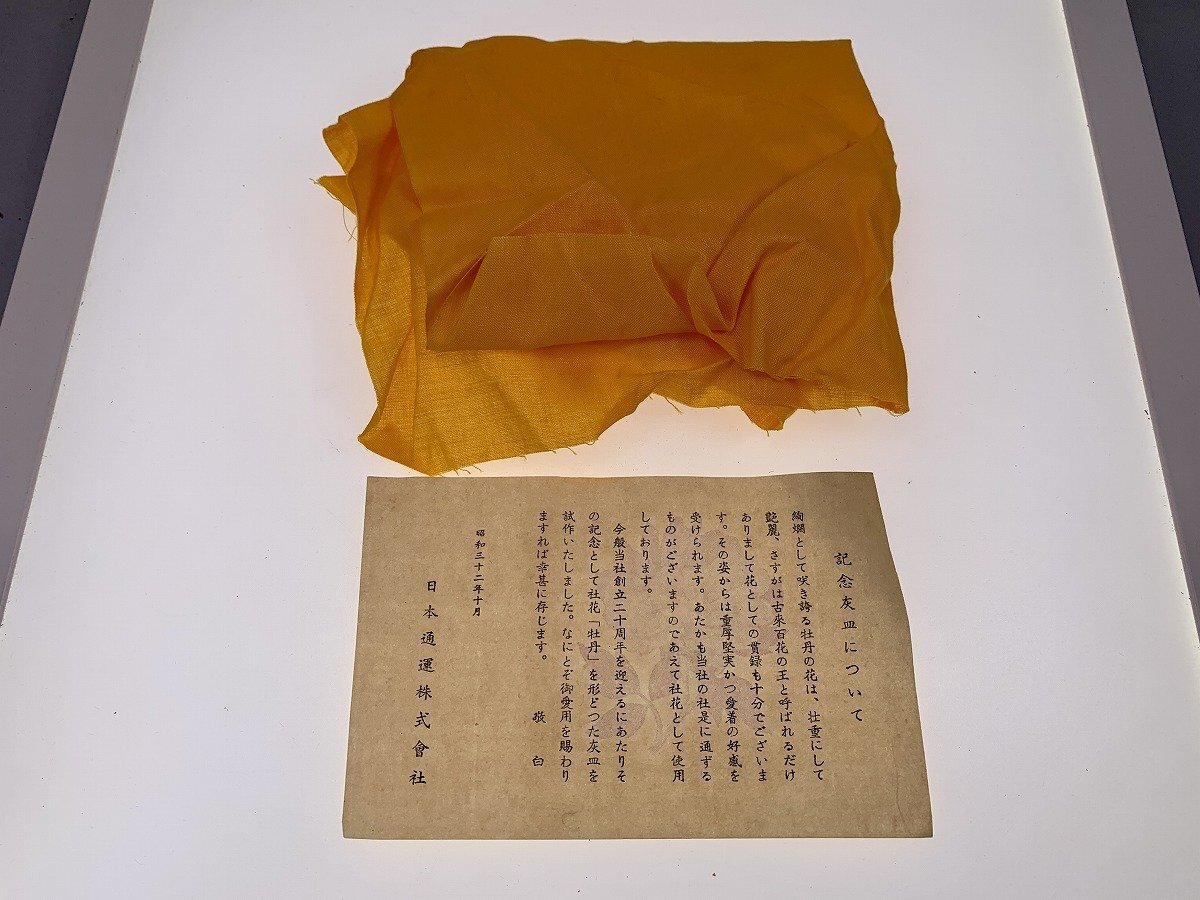 記念灰皿について
絢爛として咲き誇る牡丹の花は、壮重にして
艶麗、さすがは古來百花の王と呼ばれるだけ
ありまして花としての貫録も十分でございま
す。その姿からは重厚堅実かつ愛着の好感を
受けられます。あたかも当社の社是に通ずる
ものがございますのであえて社花として使用
しております。
今般当社創立二十周年を迎えるにあたりそ
の記念として社花「牡丹」を形どつた灰皿を
試作いたしました。なにとぞ御愛用を賜わり
ますれば幸甚に存じます。
敬白
昭和三十二年十月
日本通運株式會社